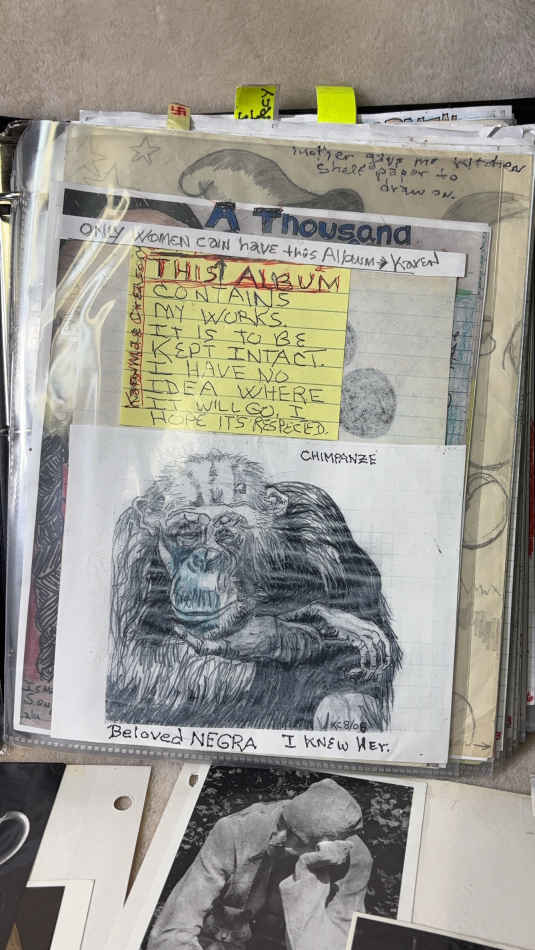 mother give me kitchen
shelf paper to
draw on.
A Thousand
ONLY WOMEN can have this Album → Karen
THIS ALBUM
CONTAINS
MY WORKS.
IT IS TO BE
KEPT INTACT.
I HAVE NO
IDEA WHERE
IT WILL GO, I
HOPE IT'S RESPECTED.
CHIMPANZE
KC 8/06
Beloved NEGRA I KNEW HER.